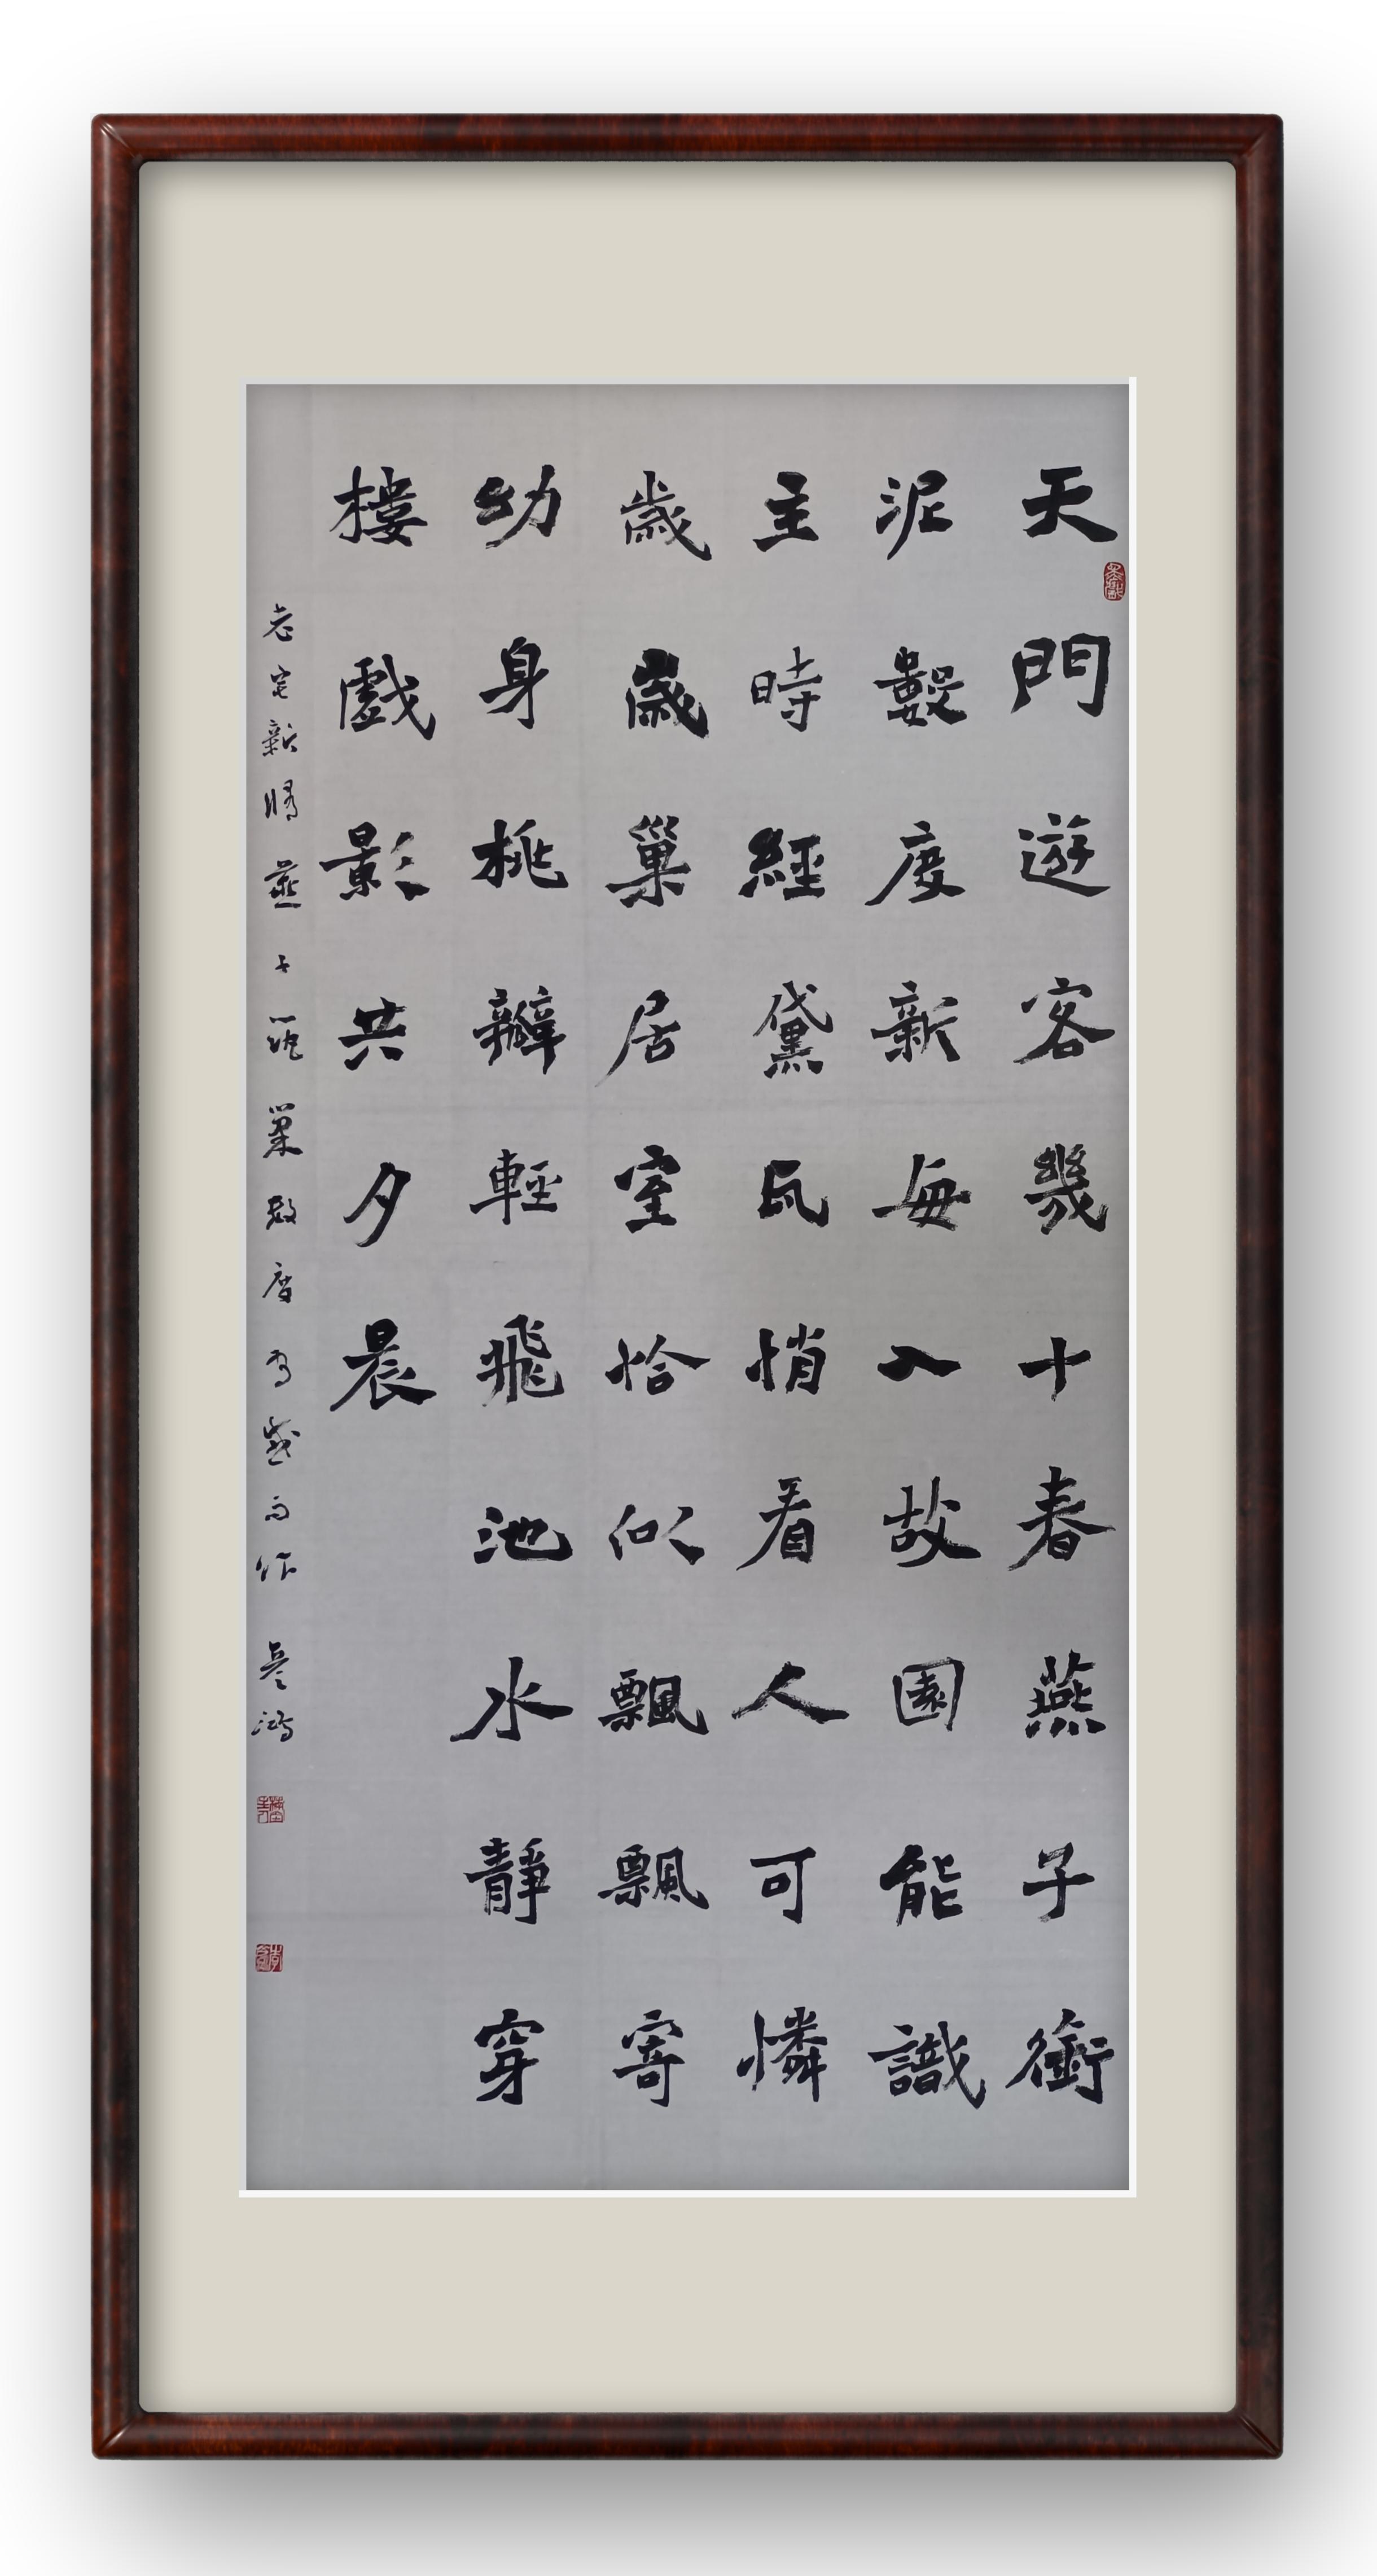 天門遊客幾十春燕子銜
泥數度新每入故園能識
主時經黛瓦悄看人可憐
歲歲巢居室恰似飄飄寄
幼身挑辮輕飛池水靜穿
樓戲影共夕晨
老宅新牆燕子築巢數度有感而作 吳鴻